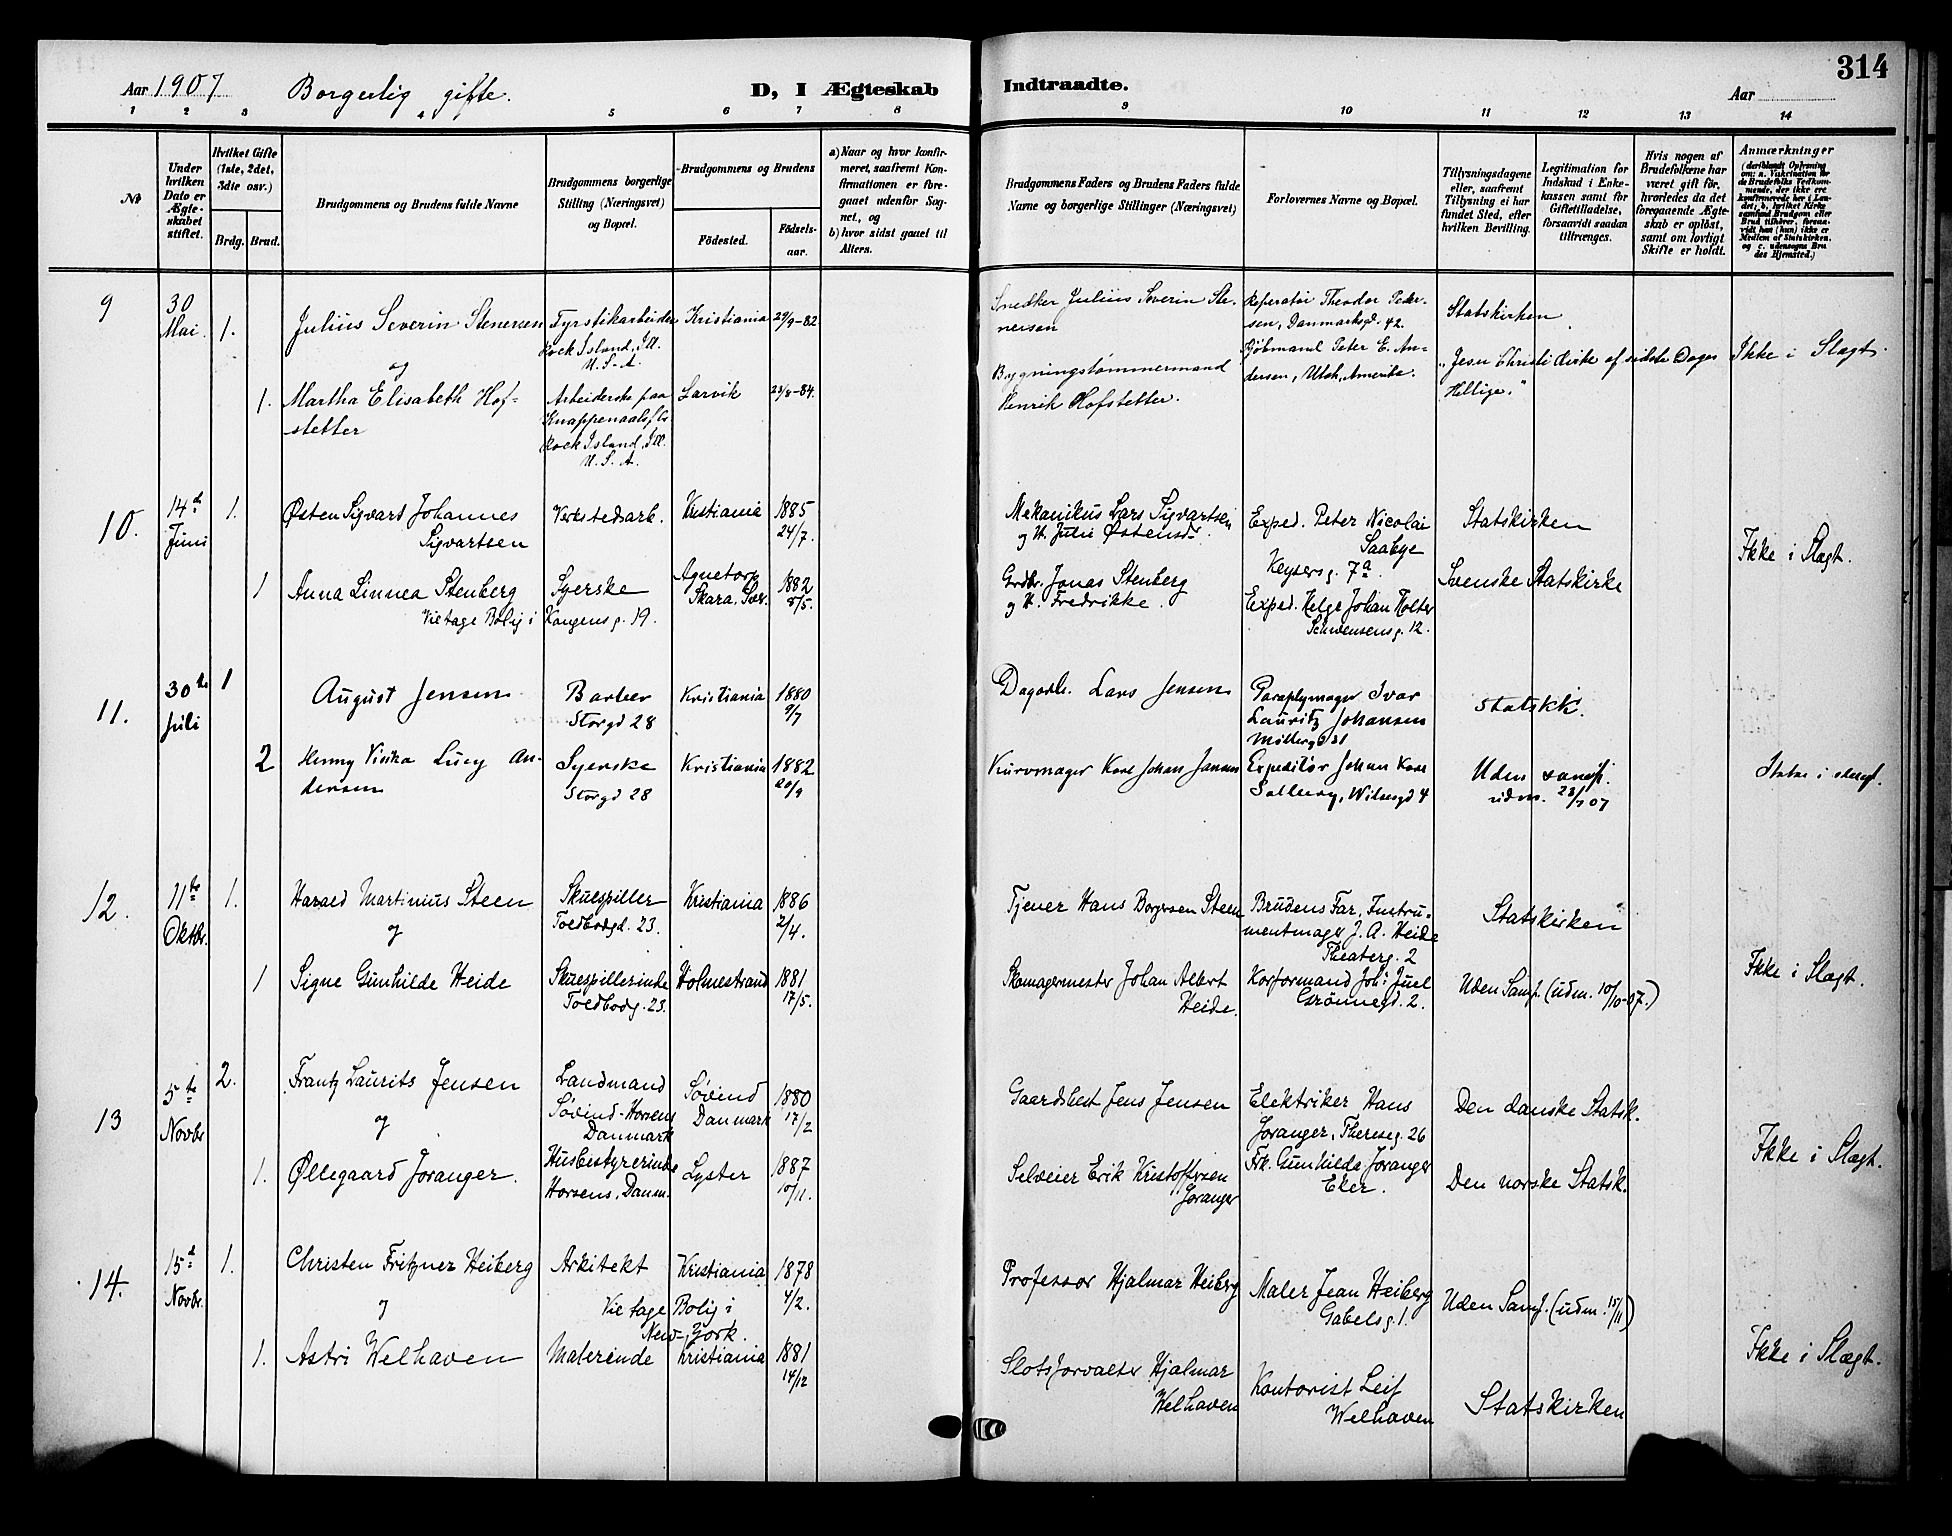 314
Aar 1907 Borgerlig gifte. D, I Ægteskab Indtraadte. Aar
1 2 3 4 5 6 7 8 9 10 11 12 13 14
№
Under hvilken Dato er Ægteskabet stiftet.
Hvilket Gifte (1ste, 2det, 3die osv.)
Brdg. Brud.
Brudgommens og Brudens fulde Navne
Brudgommens borgerlige Stilling (Næringsvei) og Bopæl.
Brudgommens og Brudens
Fødested. Fødselsaar.
a) Naar og hvor konfirmeret, saafremt Konfirmationen er foregaaet udenfor Sognet, og
b) hvor sidst gaaet til Alters.
Brudgommens Faders og Brudens Faders fulde Navne og borgerlige Stillinger (Næringsvei)
Forlovernes Navne og Bopæl.
Tillysningsdagene eller, saafremt Tillysning ei har fundet Sted, efter hvilken Bevilling.
Legitimation for Indskud i Enkekassen samt for Giftetilladelse, forsaavidt saadan tiltrænges.
Hvis nogen af Brudefolkene har været gift før, hvorledes da det foregaaende Ægteskab er opløst, samt om lovligt Skifte er holdt.
Anmærkninger
9 30 Mai 1. Julius Severin Stenersen Fyrstikarbeider Kristiania 29/9-82
Rock Island, Ill.
U. S. A.
og
1. Martha Elisabeth Hofstetter Arbeiderske paa Larvik 23/8-84.
Knappenaalsfbr
Rock Island, Ill.
U. S. A.
Snedker Julius Severin Stenersen
Reperatør Theodor Pedersen, Danmarksgd. 42.
Statskirken
Bygningstømmermand
Henrik Hofstetter.
Kjøbmand Peter E. Andersen, Utah, Amerika.
„Jesu Christi Kirke af sidste Dages
Hellige."
Ikke i Slægt.
10. 14d Juni 1. Østen Sigvart Johannes Sigvartsen Verkstedsarb. Kristiania 1885
24/7.
1 Anna Linnea Stenberg Syerske Agnetorp
Skara. Sver. 1882
8/5.
Vietage Bolig i Kongensg. 19.
Mekanikus Lars Sigvartsen
og H. Julie Østensd.
Exped. Peter Nicolai
Saabye
Keysersg. 7a.
Statskirken
Grdbr. Jonas Stenberg
og H. Fredrikke.
Exped. Helge Johan Holter
Schwensensg. 12.
Svenske Statskirke
Ikke i Slægt.
11. 30te Juli 1 August Jensen Barber Kristiania 1880
Storgd 28 9/7
2 Henny Viska Lucy Andersen Syerske Kristiania 1882
Storgd 28 20/9
Dagarb. Lars Jensen
Paraplymager Ivar
Lauritz Johansen
Møllergd 31
Statskk.
Kurvmager Karl Johan Jansen
Expeditør Johan Karl
Solberg, Wilsesgd 4
Uden samf.
udm. 23/7 07
Ikke i slægt.
12. 11te Oktbr. 1. Harald Martinius Steen Skuespiller Kristiania 1886
Toldbodgd. 23. 2/4.
og
1 Signe Gunhilde Heide Skuespillerinde Holmestrand 1881
Toldbodg. 23. 17/5.
Tjener Hans Borgersen Steen
Brudens Far, Instrumentmager J. A. Heide
Theaterg. 2
Statskirken
Skomagermester Johan Albert
Heide.
Korformand Joh: Juel
Grønnegd. 2.
Uden Samf. (udm. 10/10-07.)
Ikke i Slægt.
13 5te Novbr 2. Frantz Laurits Jensen Landmand Søvind 1880
Søvind-Horsens Danmark 17/2
Danmark
og
1. Øllegaard Joranger. Husbestyrerinde Lyster 1887
Horsens, Danm. 10/11.
Gaardsbest Jens Jensen
Elektriker Hans
Joranger, Theresg. 26
Den danske Statsk.
Selveier Erik Kristoffersen
Joranger
Frk. Gunhilda Joranger
Eker.
Den norske Statsk.
Ikke i Slægt.
14. 15d Novbr. 1. Christen Fritzner Heiberg Arkitekt Kristiania 1878
4/2.
og Vietage Bolig i
New-York.
1. Astri Welhaven Malerinde Kristiania 1881
14/12
Professor Hjalmar Heiberg
Maler Jean Heiberg
Gabelsg 1.
Uden Samf. (udm. 15/11)
Slotsforvalter Hjalmar
Welhaven
Kontorist Leif
Welhaven
Statskirken
Ikke i Slægt.